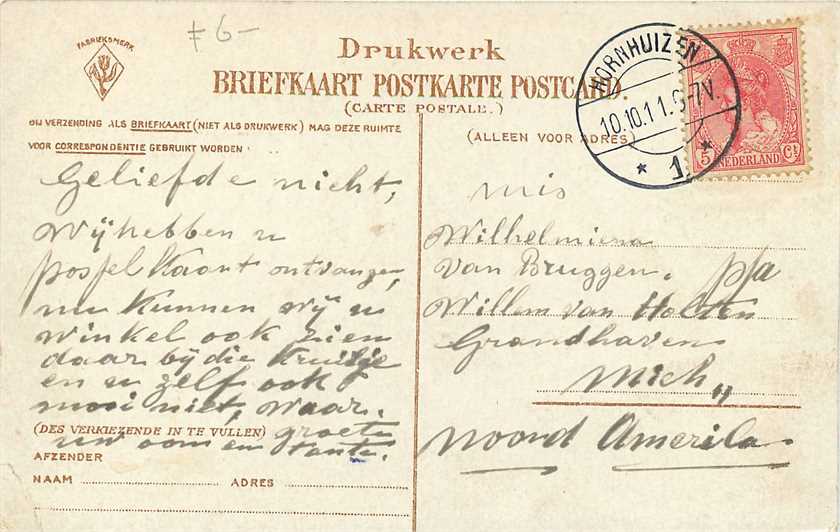 F 6-
FABRIEKSMERK
Drukwerk
BRIEFKAART POSTKARTE POSTCARD.
(CARTE POSTALE.)
BIJ VERZENDING ALS BRIEFKAART (NIET ALS DRUKWERK) MAG DEZE RUIMTE
VOOR CORRESPONDENTIE GEBRUIKT WORDEN
(ALLEEN VOOR ADRES)
HORNHUIZEN
10.10.11. 6-7V.
* 1 *
5 NEDERLAND Ct
Geliefde nicht,
Wij hebben u
postel kaart ontvangen,
nu kunnen wij u
winkel ook zien
daar bij die kruisje
en u zelf ook
mooi niet, waar.
(DES VERKIEZENDE IN TE VULLEN) groete
uw oom en tante.
AFZENDER
NAAM ADRES
mis
Wilhelmiena
van Bruggen. p/a
Willem van Holten
Grandhaven
Mich,,
Noord Amerika